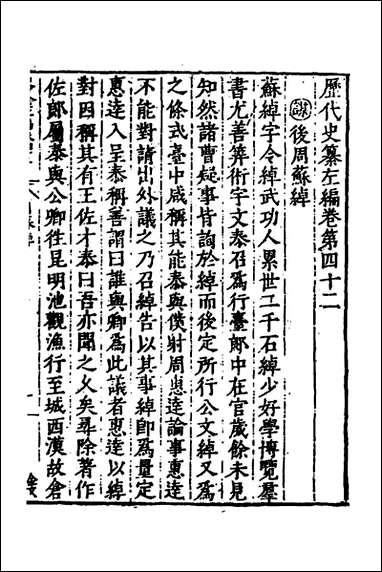 歷代史纂左編卷第四十二
謀 後周蘇綽
蘇綽字令綽武功人累世二千石綽少好學博覽羣
書尤善筭術宇文泰召爲行臺郎中在官歲餘未見
知然諸曹疑事皆詢於綽而後定所行公文綽又爲
之條式臺中咸稱其能泰與僕射周惠逹論事惠逹
不能對請出外議之乃召綽告以其事綽即爲量定
惠逹入呈泰稱善謂曰誰與卿爲此議者惠逹以綽
對因稱其有王佐才泰曰吾亦聞之乆矣尋除著作
佐郎屬泰與公卿徃昆明池觀漁行至城西漢故倉